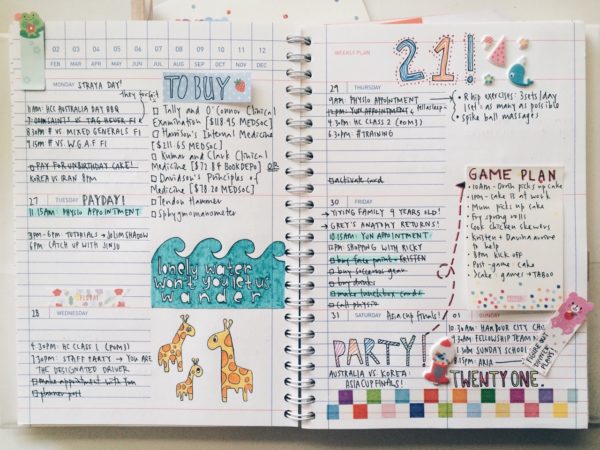 01 02 03 04 05 06 07 08 09 10 11 12
JAN FEB MAR APR MAY JUN JUL AUG SEP OCT NOV DEC
MONDAY STRAYA DAY!
they forfeit
11AM: HCC AUSTRALIA DAY BBQ
7:00PM
8:30PM # VS. MIXED GENERALS F1
9:15PM # VS. W.G.A.F F1
PAY FOR UNBIRTHDAY CAKE!
KOREA VS IRAN 8PM
27 TUESDAY PAYDAY!
11.15AM: PHYSIO APPOINTMENT
3PM-6PM: TUTORIALS → JOLIMSHADOW
6PM: CATCH UP WITH JINJU
28
WEDNESDAY
4.30PM: HC CLASS 2 (ROM3)
7.30PM: STAFF PARTY → YOU ARE
THE DESIGNATED DRIVER
make appointment with Tom
planner post
TO BUY
Tally and O'Connor Clinical
Examination [$118.95 MEDSOC]
Harrison's Internal Medicine
[$211.65 MEDSOC]
Kumar and Clark Clinical
Medicine [$72.84 BOOKDEPO] OR
Davidson's Principles of
Medicine [$78.20 MEDSOC]
Tendon Hammer
Sphygmomanometer
lonely water
won't you let us
wander
WEEKLY PLAN
21!
29 THURSDAY
9AM: PHYSIO APPOINTMENT
YUN APPOINTMENT
4.30PM: HC CLASS 2 (ROOM 3)
6.30PM: #TRAINING
R hip exercises: 3 sets/day
1 set as many as possible
spike ball massages
activate card
30 FRIDAY
→ YIXING FAMILY 9 YEARS OLD!
→ GREY'S ANATOMY RETURNS!
10.15AM: YUN APPOINTMENT
2PM: SHOPPING WITH RICKY
buy face paint - KRISTEN
buy soccaroos gear
buy drinks
make lunchbox cards
call physio
GAME PLAN
10AM - Dorth picks up cake
1pm - Cake is at work
Mum picks up cake
Fry spring rolls
Cook chicken skewers
Kristen + Davina arrive
to help
8pm kick off
Post-game cake
3 cake games → TABOO
31 SATURDAY Asia Cup finals!
PARTY!
AUSTRALIA VS. KOREA:
ASIA CUP FINALS!
01 SUNDAY
10.30AM: HARBOUR CITY
FELLOWSHIP TEAM
SUNDAY SCHOOL
ARIA
TWENTY ONE.